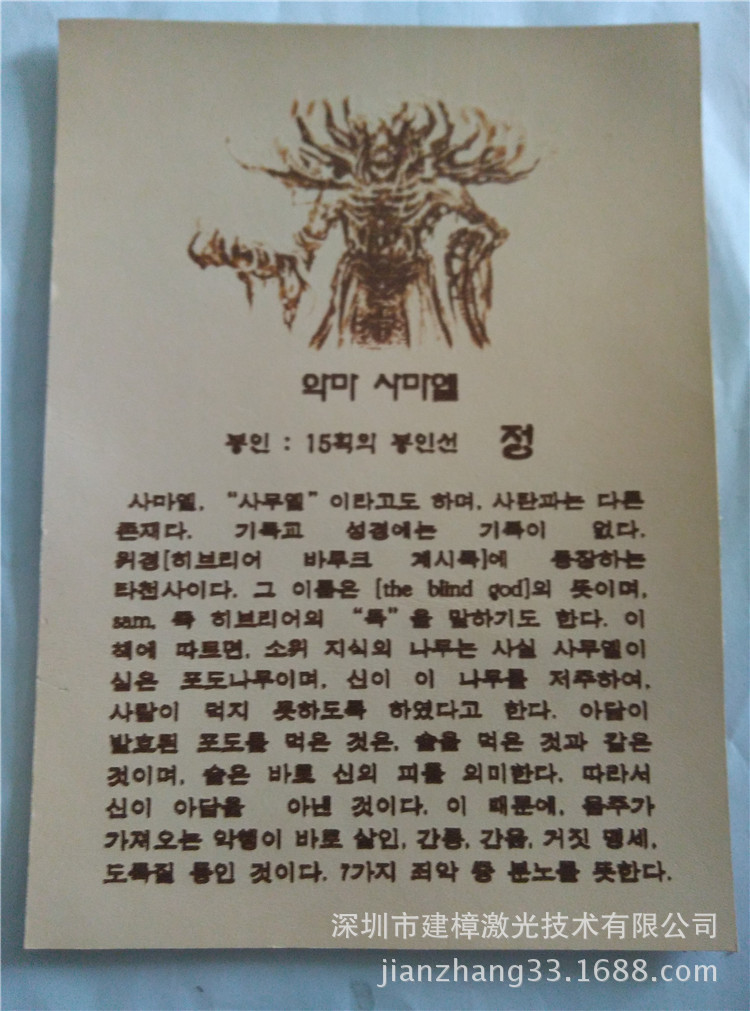 악마 사마엘
봉인 : 15획의 봉인선 정
사마엘, “사무엘”이라고도 하며, 사탄과는 다른
존재다. 기록교 성경에는 기록이 없다.
위경[히브리어 바루크 계시록]에 등장하는
타천사이다. 그 이름은 [the blind god]의 뜻이며,
sam, 즉 히브리어의 “독”을 말하기도 한다. 이
책에 따르면, 소위 지식의 나무는 사실 사무엘이
심은 포도나무이며, 신이 이 나무를 저주하여,
사람이 먹지 못하도록 하였다고 한다. 아담이
발효된 포도를 먹은 것은, 술을 먹은 것과 같은
것이며, 술은 바로 신의 피를 의미한다. 따라서
신이 아담을 아낸 것이다. 이 때문에, 음주가
가져오는 악행이 바로 살인, 간통, 간음, 거짓 맹세,
도둑질 등인 것이다. 7가지 죄악 중 분노를 뜻한다.
深圳市建樟激光技术有限公司
jianzhang33.1688.com